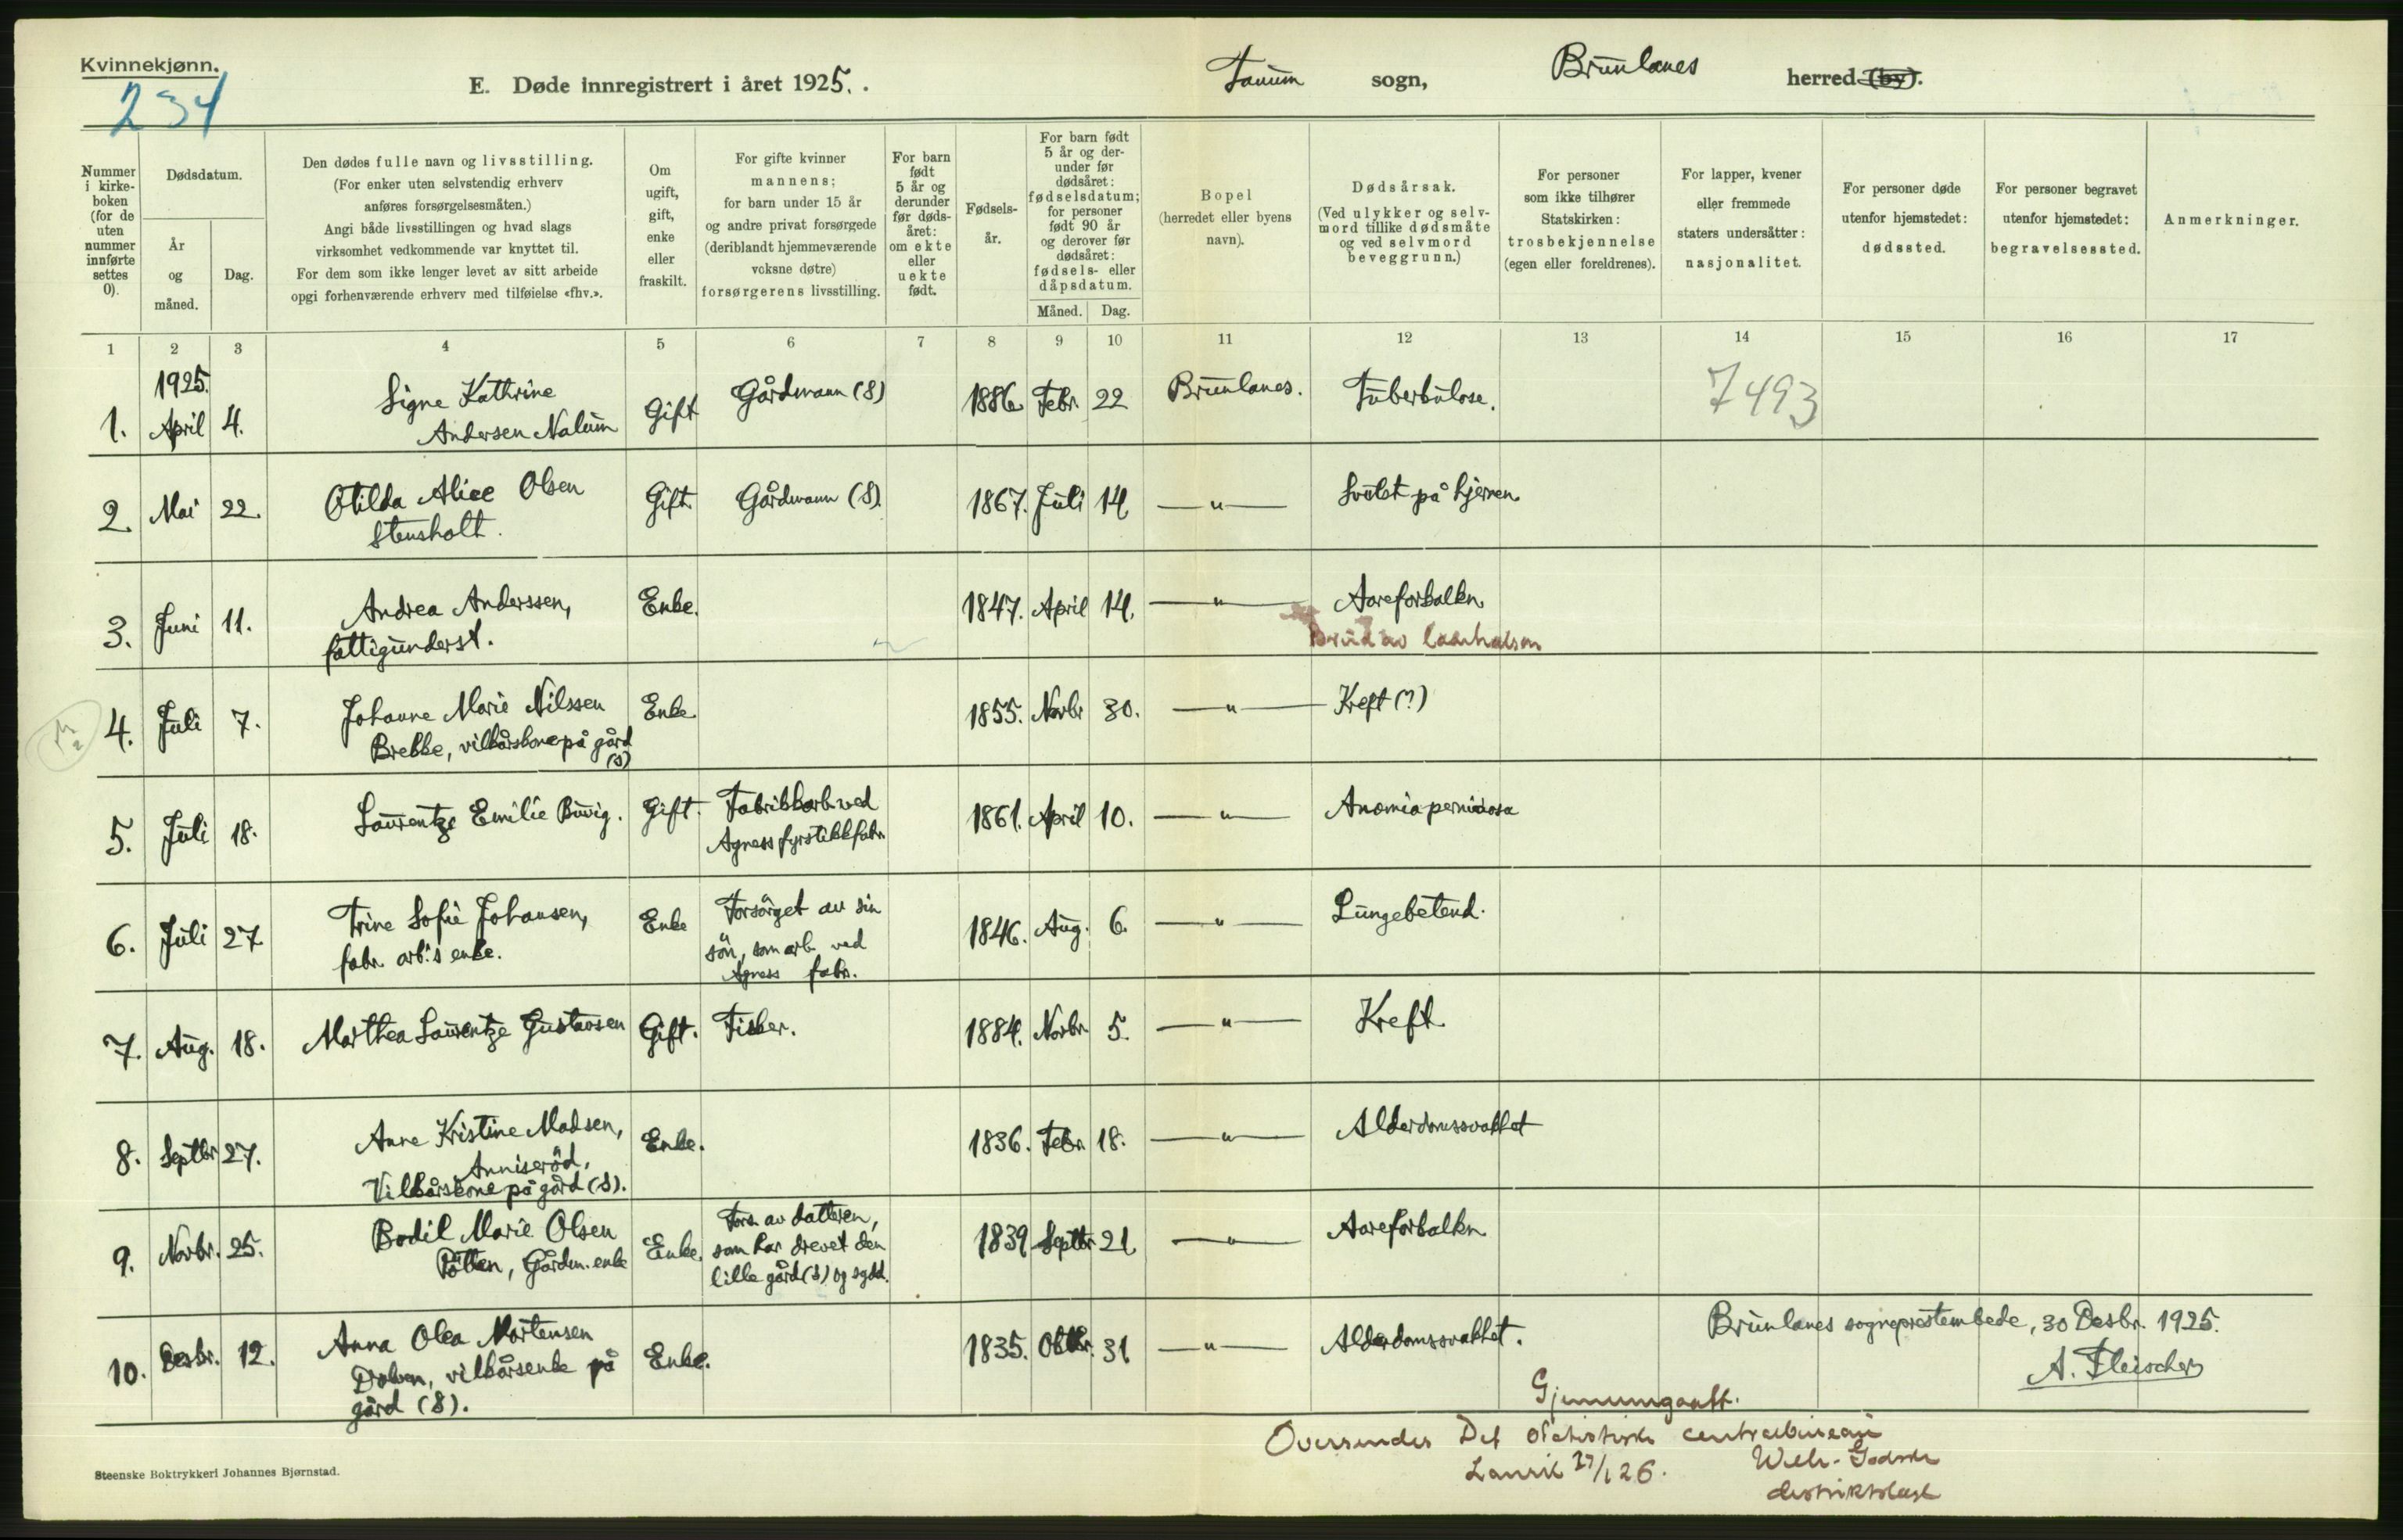 Kvinnekjønn.
234
E. Døde innregistrert i året 1925.
Tanum sogn, Brunlanes herred (by).
Nummer i kirke-boken (for de uten nummer innførte settes 0).
Dødsdatum.
År og måned.
Dag.
Den dødes fulle navn og livsstilling.
(For enker uten selvstendig erhverv
anføres forsørgelsesmåten.)
Angi både livsstillingen og hvad slags
virksomhet vedkommende var knyttet til.
For dem som ikke lenger levet av sitt arbeide
opgi forhenværende erhverv med tilføielse «fhv.».
Om ugift, gift, enke eller fraskilt.
For gifte kvinner
mannens;
for barn under 15 år
og andre privat forsørgede
(deriblandt hjemmeværende
voksne døtre)
forsørgerens livsstilling.
For barn født 5 år og derunder før døds-året: om ekte eller uekte født.
Fødsels-år.
For barn født 5 år og der-under før dødsåret: fødselsdatum; for personer født 90 år og derover før dødsåret: fødsels- eller dåpsdatum.
Måned. Dag.
Bopel
(herredet eller byens
navn).
Dødsårsak.
(Ved ulykker og selv-
mord tillike dødsmåte
og ved selvmord
beveggrunn.)
For personer
som ikke tilhører
Statskirken:
trosbekjennelse
(egen eller foreldrenes).
For lapper, kvener
eller fremmede
staters undersåtter:
nasjonalitet.
For personer døde
utenfor hjemstedet:
dødssted.
For personer begravet
utenfor hjemstedet:
begravelsessted.
Anmerkninger.
1 2 3 4 5 6 7 8 9 10 11 12 13 14 15 16 17
1925.
1. April 4. Signe Kathrine
Andersen Nalum Gift Gårdmann (S) 1886 Febr. 22 Brunlanes. Tuberkulose. 7493
2. Mai 22. Otilda Alice Olsen
Stensholt. Gift Gårdmann (S) 1867. Juli 14 —"— Svulst på hjernen
3. Juni 11. Andrea Anderssen,
fattigunderst. Enke. 1847. April 14. —"— Aareforkalkn.
Brud av laarhalsen
4. Juli 7. Johanne Marie Nilssen
Brekke, vilkårskone på gård
(S) Enke 1855. Novbr 30. —"— Kreft (?)
5. Juli 18. Laurentze Emilie Buvig. Gift. Fabrikkarb. ved
Agness fyrstikkfabr. 1861. April 10. —"— Anæmia perniciosa
6. Juli 27 Trine Sofie Johansen,
fabr. arb.s enke. Enke Forsörget av sin
sön, som arb. ved
Agness fabr. 1846. Aug. 6. —"— Lungebetend.
7. Aug. 18. Marthea Laurentze Gustavsen Gift. Fisker. 1884. Novbr. 5. —"— Kreft
8. Septbr 27. Anne Kristine Madsen,
Anniseröd,
Vilkårskone på gård (S). Enke. 1836. Febr. 18. —"— Alderdomssvakhet
9. Novbr. 25. Bodil Marie Olsen
Pötten, Gårdm. enke Enke. Fors. av datteren,
som har drevet den
lille gård (S) og sydd. 1839 Septbr 21 —"— Aareforkalkn.
10. Desbr. 12. Anna Olea Mortensen
Dolven, vilkårsenke på
gård (S). Enke. 1835. Oktbr. 31 —"— Alderdomssvakhet.
Brunlanes sogneprestembede, 30 Desbr. 1925.
A. Fleischer
Gjennemgaatt.
Oversendes Det statistiske centralbureau
Larvik 27/1 26.
Wilh.
distriktslæge
Steenske Boktrykkeri Johannes Bjørnstad.